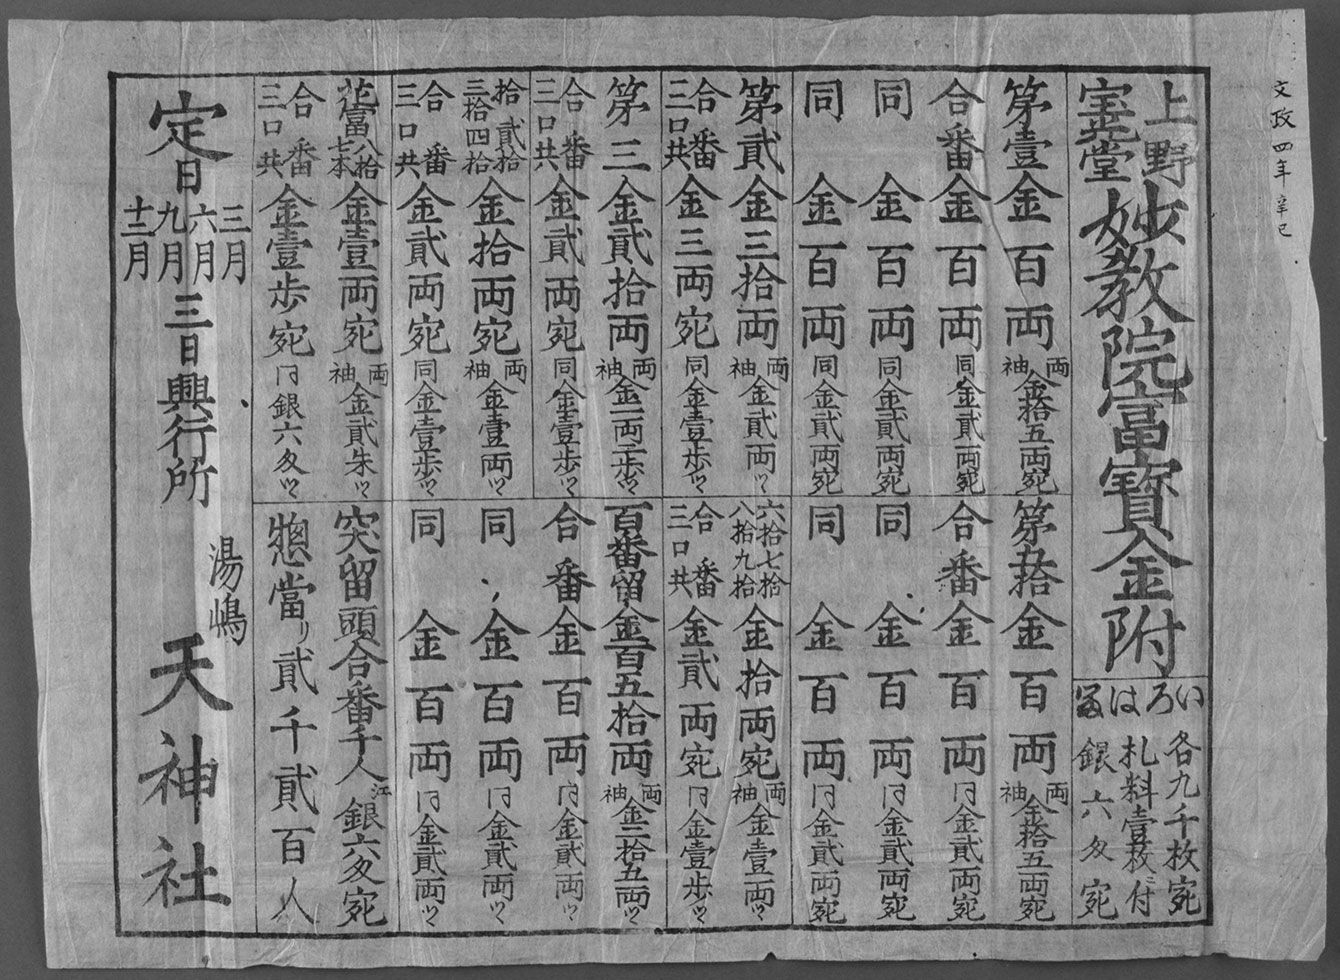 文政四年辛巳
上野
寚堂
妙教院富寳金附
いろは留
各九千枚宛
札料壹枚ニ付
銀六匁宛
第壹 金百両 両袖金拾五両宛
合番 金百両 同金貳両宛
同 金百両 同金貳両宛
同 金百両 同金貳両宛
第貳 金三拾両 両袖金貳両ツヽ
合番三口共 金三両宛 同金壹歩ツヽ
第三 金貳拾両 両袖金一両二歩ツヽ
合番三口共 金貳両宛 同金壹歩ツヽ
拾 貳拾 三拾 四拾 金拾両宛 両袖金壹両ツヽ
合番三口共 金貳両宛 同金壹歩ツヽ
花富八拾七本 金壹両宛 両袖金貳朱ツヽ
合番三口共 金壹歩宛 同銀六匁ツヽ
第五拾 金百両 両袖金拾五両宛
合番 金百両 同金貳両宛
同 金百両 同金貳両宛
同 金百両 同金貳両宛
六拾 七拾 八拾 九拾 金拾両宛 両袖金壹両ツヽ
合番三口共 金貳両宛 同金壹歩ツヽ
百番留 金百五拾両 両袖金二拾五両ツヽ
合番 金百両 同金貳両ツヽ
同 金百両 同金貳両ツヽ
同 金百両 同金貳両ツヽ
突留頭合番千人江銀六匁宛
惣當リ貳千貳百人
定日
三月
六月
九月
十二月
三日興行所
湯嶋
天神社